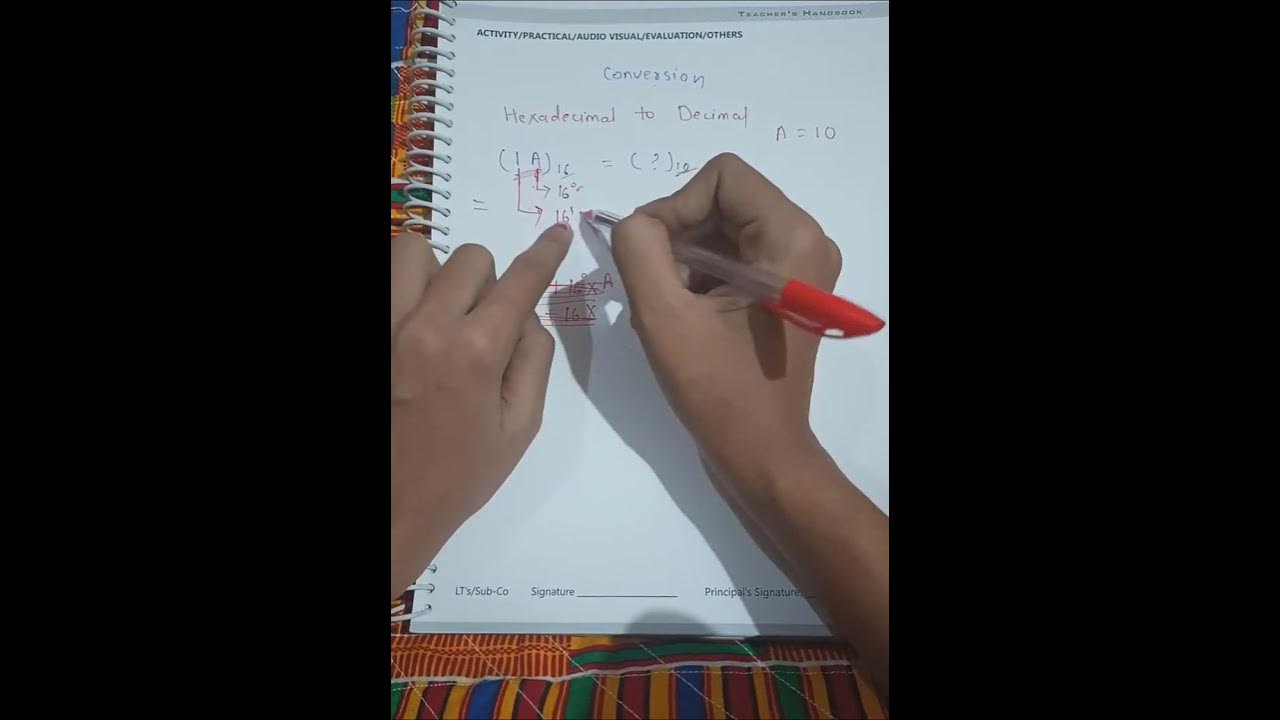 TEACHER'S HANDBOOK
ACTIVITY/PRACTICAL/AUDIO VISUAL/EVALUATION/OTHERS
Conversion
Hexadecimal to Decimal
A = 10
(1 A)₁₆ = (?)₁₀
16⁰
= 16¹
+ 16⁰ x A
= 16 x
LT's/Sub-Co Signature Principal's Signature: